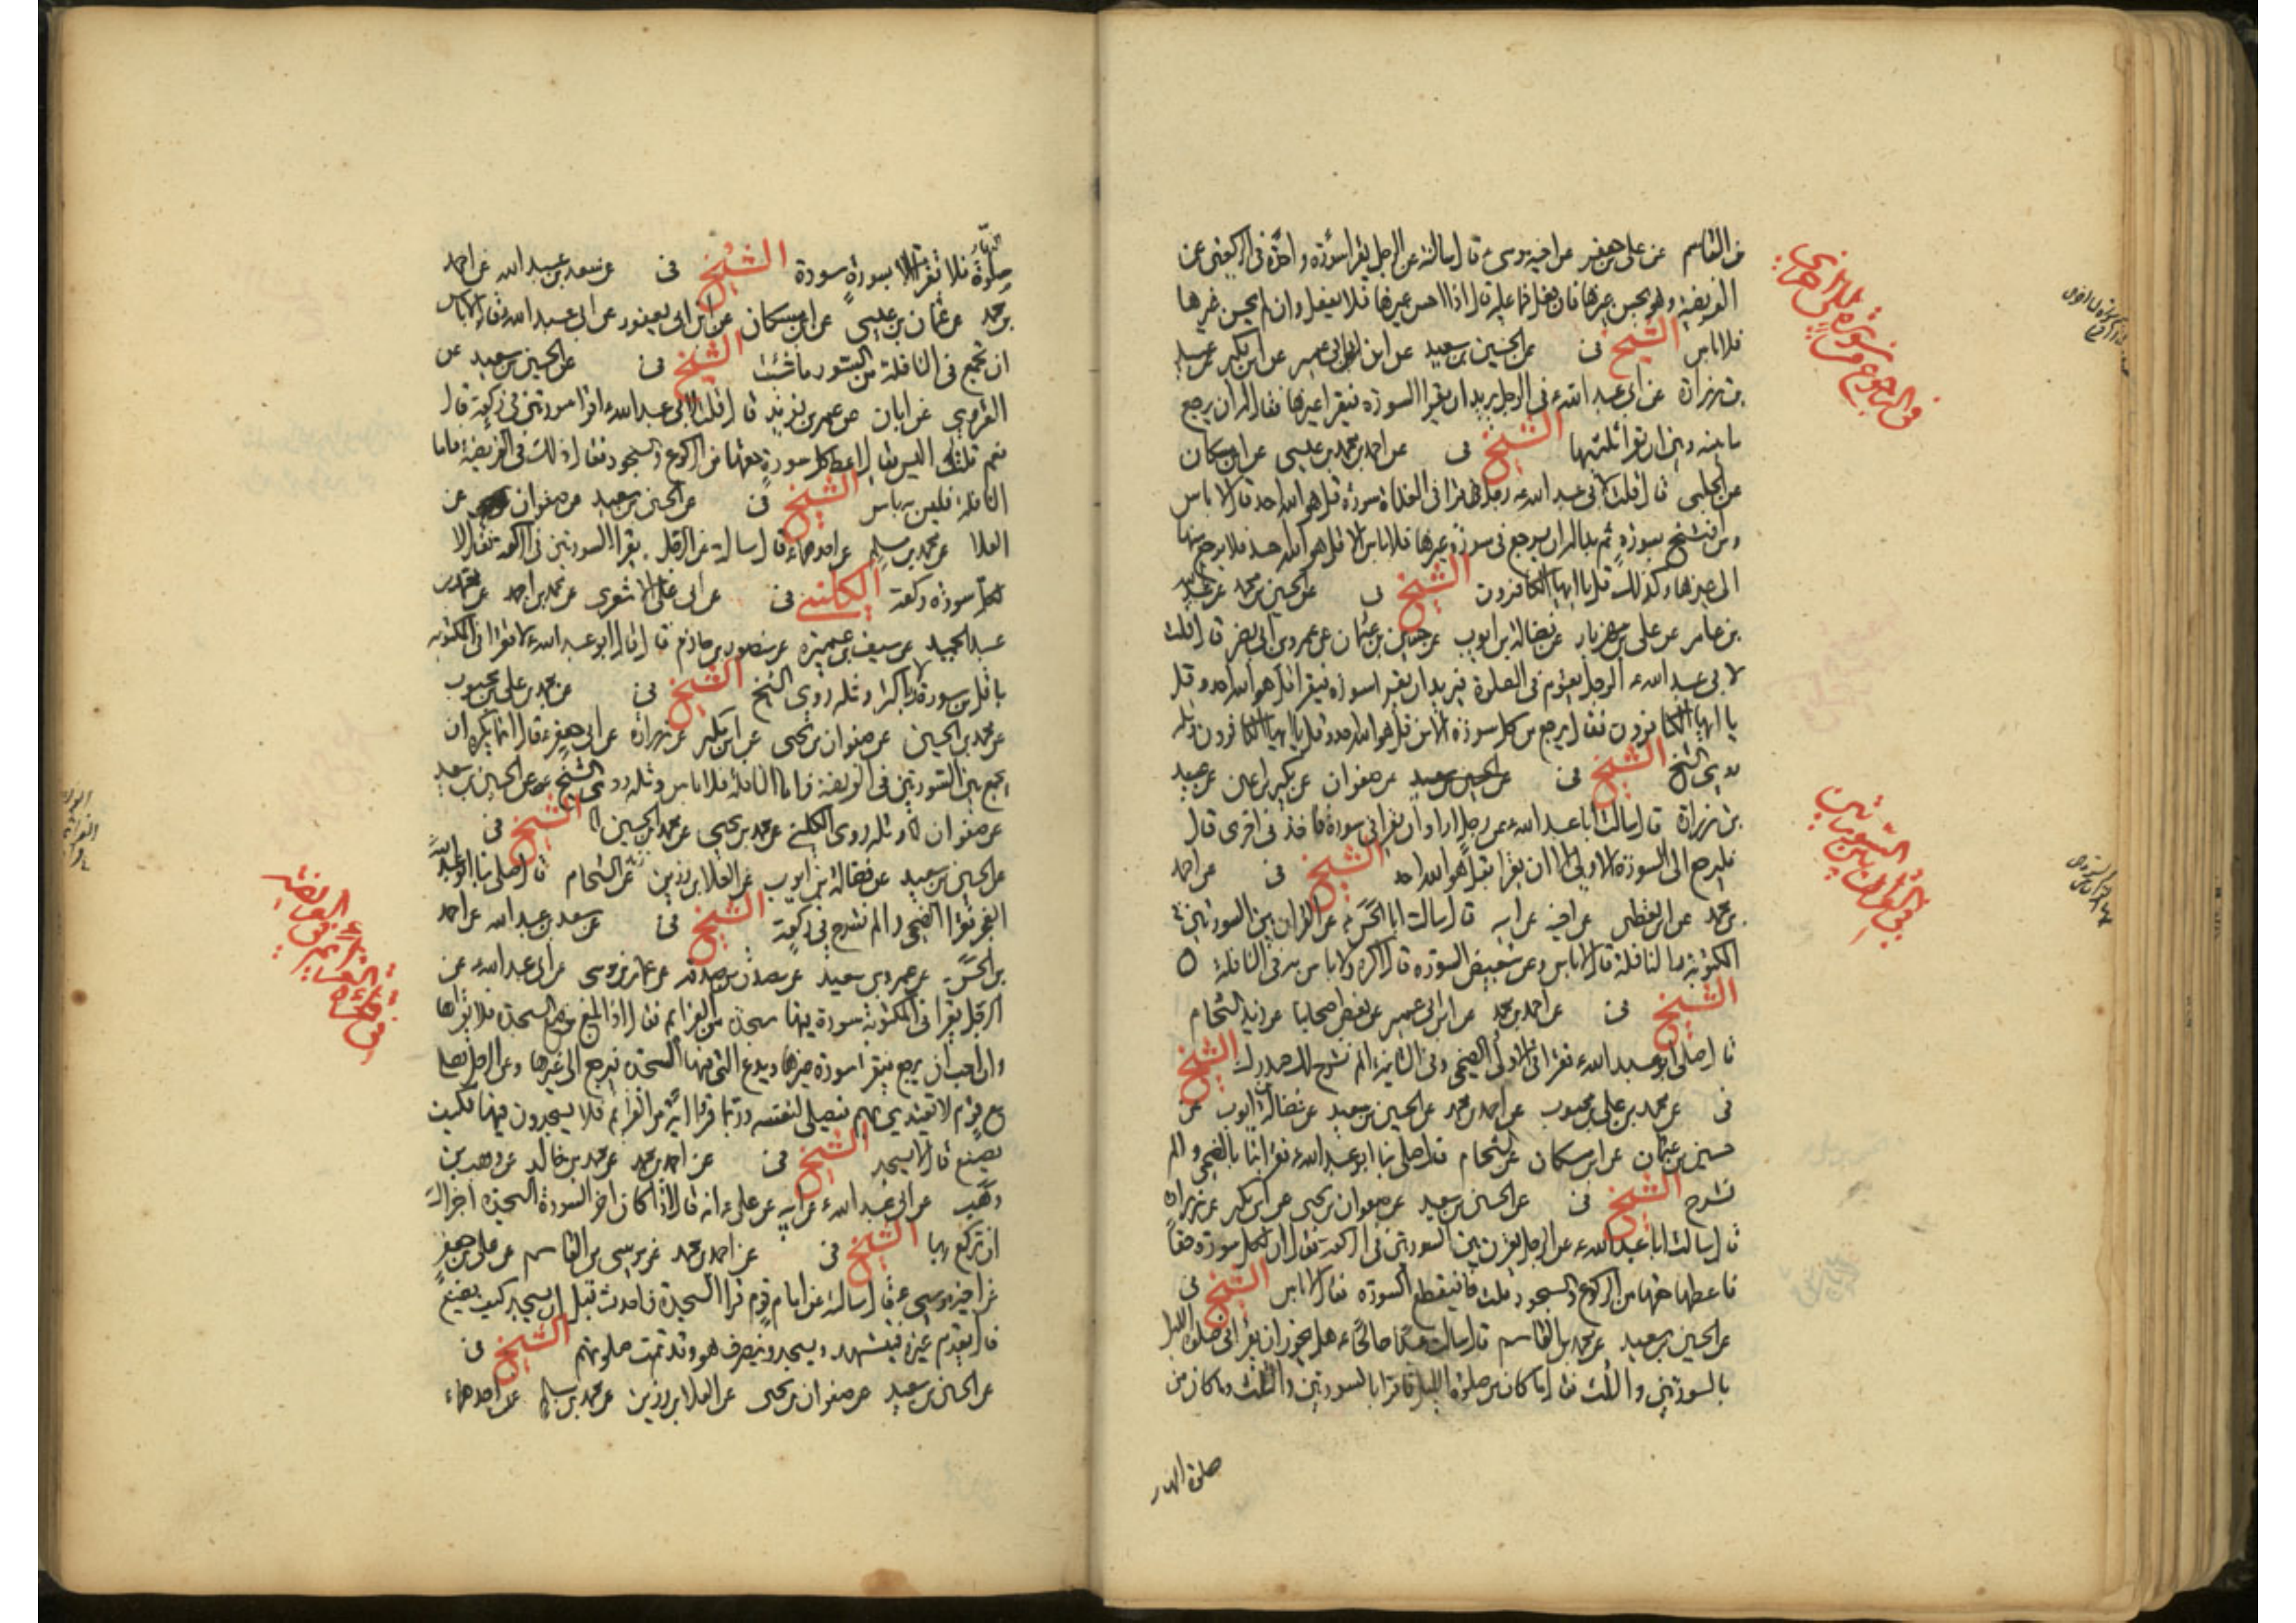 بن القاسم عن على بن جعفر عن اخيه موسى ع قال سالته عن الرجل يقرا سورة واحدة فى الركعتين من
الفريضة وهو يحسن غيرها فان فعل فما عليه قال اذا احسن غيرها فلا يفعل وان لم يحسن غيرها
فلا باس الشيخ فى عن الحسين بن سعيد عن ابن ابى عمير عن ابن بكير عن عبيد
بن زرارة عن ابى عبد الله ع فى الرجل يريد ان يقرا السورة فيقرا غيرها فقال له ان يرجع
ما بينه وبين ان يقرا ثلثيها الشيخ فى عن احمد بن محمد بن عيسى عن ابن مسكان
عن الحلبى قال قلت لابى عبد الله ع رجل قرا فى الغداة سورة قل هو الله احد قال لا باس
ومن افتتح بسورة ثم بدا له ان يرجع فى سورة غيرها فلا باس الا قل هو الله احد فلا يرجع منها
الى غيرها وكذلك قل يا ايها الكافرون الشيخ فى عن الحسين بن محمد عن عبد الله
بن عامر عن على بن مهزيار عن فضالة بن ايوب عن حسين بن عثمان عن عمرو بن ابى نصر قال قلت
لابى عبد الله ع الرجل يقوم فى الصلوة فيريد ان يقرا سورة فيقرا قل هو الله احد وقل
يا ايها الكافرون فقال يرجع من كل سورة الا من قل هو الله احد وقل يا ايها الكافرون ومثله
روى الشيخ الشيخ فى عن الحسين بن سعيد عن صفوان عن بكير بن اعين عن عبيد
بن زرارة قال سالت ابا عبد الله ع عن رجل اراد ان يقرا فى سورة فاخذ فى اخرى قال
فليرجع الى السورة الاولى الا ان يقرا بقل هو الله احد الشيخ فى عن احمد
بن محمد عن ابن يقطين عن اخيه عن ابيه قال سالت ابا الحسن ع عن القران بين السورتين فى
المكتوبة والنافلة قال لا باس وعن تبعيض السورة قال اكره ولا باس به فى النافلة
الشيخ فى عن احمد بن محمد عن ابن ابى عمير عن بعض اصحابنا عن زيد الشحام
قال صلى ابو عبد الله ع فقرا فى الاولى الضحى وفى الثانية الم نشرح لك صدرك الشيخ
فى عن محمد بن على بن محبوب عن احمد بن محمد عن الحسين بن سعيد عن فضالة بن ايوب عن
حسين بن عثمان عن ابن مسكان عن الشحام قال صلى بنا ابو عبد الله ع فقرا بنا بالضحى والم
نشرح الشيخ فى عن الحسين بن سعيد عن صفوان بن يحيى عن ابن بكير عن زرارة
قال سالت ابا عبد الله ع عن الرجل يقرن بين السورتين فى الركعة فقال ان لكل سورة حقا
فاعطها حقها من الركوع والسجود قلت فيقطع السورة فقال لا باس الشيخ فى
عن الحسين بن سعيد عن محمد بن القاسم قال سالت عبدا صالحا ع هل يجوز ان يقرا فى صلوة الليل
بالسورتين والثلث فقال ما كان من صلوة الليل فاقرا بالسورتين والثلث وما كان من
صلوة النهار
فى الرجوع من سورة الى اخرى
فى القران بين السورتين
النهار
صلوة فلا تقرا الا بسورة سورة الشيخ فى عن سعد بن عبد الله عن احمد
بن محمد عن عثمان بن عيسى عن ابن مسكان عن ابن ابى يعفور عن ابى عبد الله ع قال لا باس
ان تجمع فى النافلة من السور ما شئت الشيخ فى عن الحسين بن سعيد عن
القروى عن ابان عن عمر بن يزيد قال قلت لابى عبد الله ع اقرا سورتين فى ركعة قال
نعم قلت اليس يقال اعط كل سورة حقها من الركوع والسجود فقال ذلك فى الفريضة فاما
النافلة فليس به باس الشيخ فى عن الحسين بن سعيد عن صفوان عن
العلا عن محمد بن مسلم عن احدهما ع قال سالته عن الرجل يقرا السورتين فى الركعة فقال لا
لكل سورة ركعة الكلينى فى عن ابى على الاشعرى عن محمد بن احمد عن محمد بن
عبد الحميد عن سيف بن عميرة عن منصور بن حازم قال قال ابو عبد الله ع لا تقرا فى المكتوبة
باقل من سورة ولا باكثر ومثله روى الشيخ الشيخ فى عن محمد بن على بن محبوب
عن محمد بن الحسين عن صفوان بن يحيى عن ابن بكير عن زرارة عن ابى جعفر ع قال انما يكره ان
يجمع بين السورتين فى الفريضة فاما النافلة فلا باس ومثله روى الشيخ عن الحسين بن سعيد
عن صفوان ومثله روى الكلينى عن محمد بن يحيى عن محمد بن الحسين الشيخ فى
عن الحسين بن سعيد عن فضالة بن ايوب عن العلا بن رزين عن الشحام قال صلى بنا ابو عبد الله ع
الفجر فقرا الضحى والم نشرح فى ركعة الشيخ فى عن سعد بن عبد الله عن احمد
بن الحسن عن عمرو بن سعيد عن مصدق بن صدقة عن عمار بن موسى عن ابى عبد الله ع عن
الرجل يقرا فى المكتوبة سورة فيها سجدة من العزايم فقال اذا بلغ موضع السجدة فلا يقراها
وان احب ان يرجع فيقرا سورة غيرها ويدع التى فيها السجدة فيرجع الى غيرها وعن الرجل يصلى
مع قوم لا يقتدى بهم فيصلى لنفسه وربما قرا اية من العزايم فلا يسجدون فيها فكيف
يصنع قال لا يسجد الشيخ فى عن احمد بن محمد عن محمد بن خالد عن وهب بن
وهب عن ابى عبد الله ع عن ابيه عن على ع انه قال اذا كان اخر السورة السجدة اجزاك
ان تركع بها الشيخ فى عن احمد بن محمد عن موسى بن القاسم عن على بن جعفر
عن اخيه موسى ع قال سالته عن امام قوم قرا السجدة فاحدث قبل ان يسجد كيف يصنع
قال يقدم غيره فيتشهد ويسجد وينصرف هو وقد تمت صلوتهم الشيخ فى
عن الحسين بن سعيد عن صفوان بن يحيى عن العلا بن رزين عن محمد بن مسلم عن احدهما ع